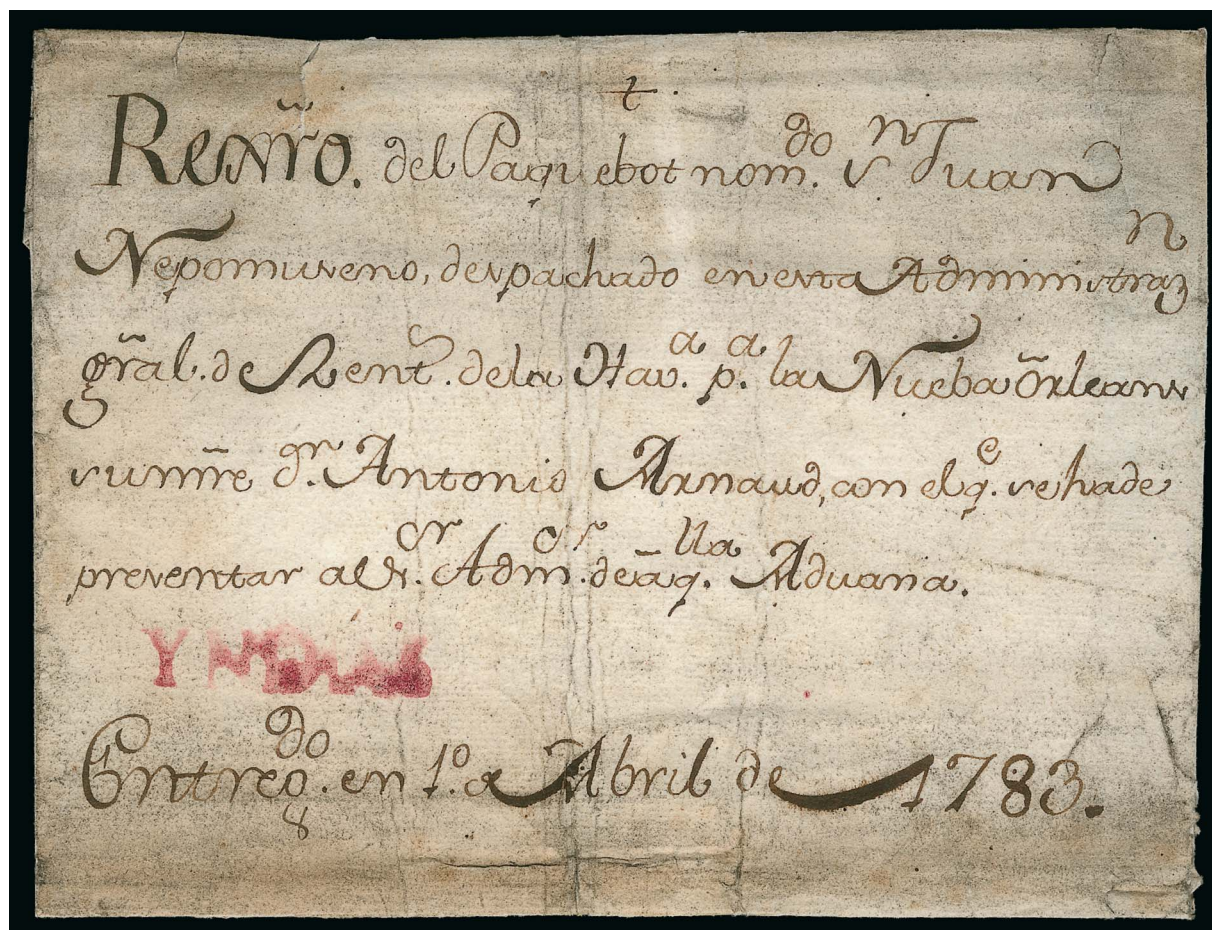 †
Rexño. del Paquebot nom.do Sn Juan
Nepomuseno, despachado en esta Administrazn
gral. de Rents. de la Hav.a p.a la Nueba Orleans
su mre dn. Antonio Arnaud, con el q.e se ha de
presentar al Sr. Adm.or de aq.lla Aduana.
Entreg.do en 1.o de Abril de 1783.